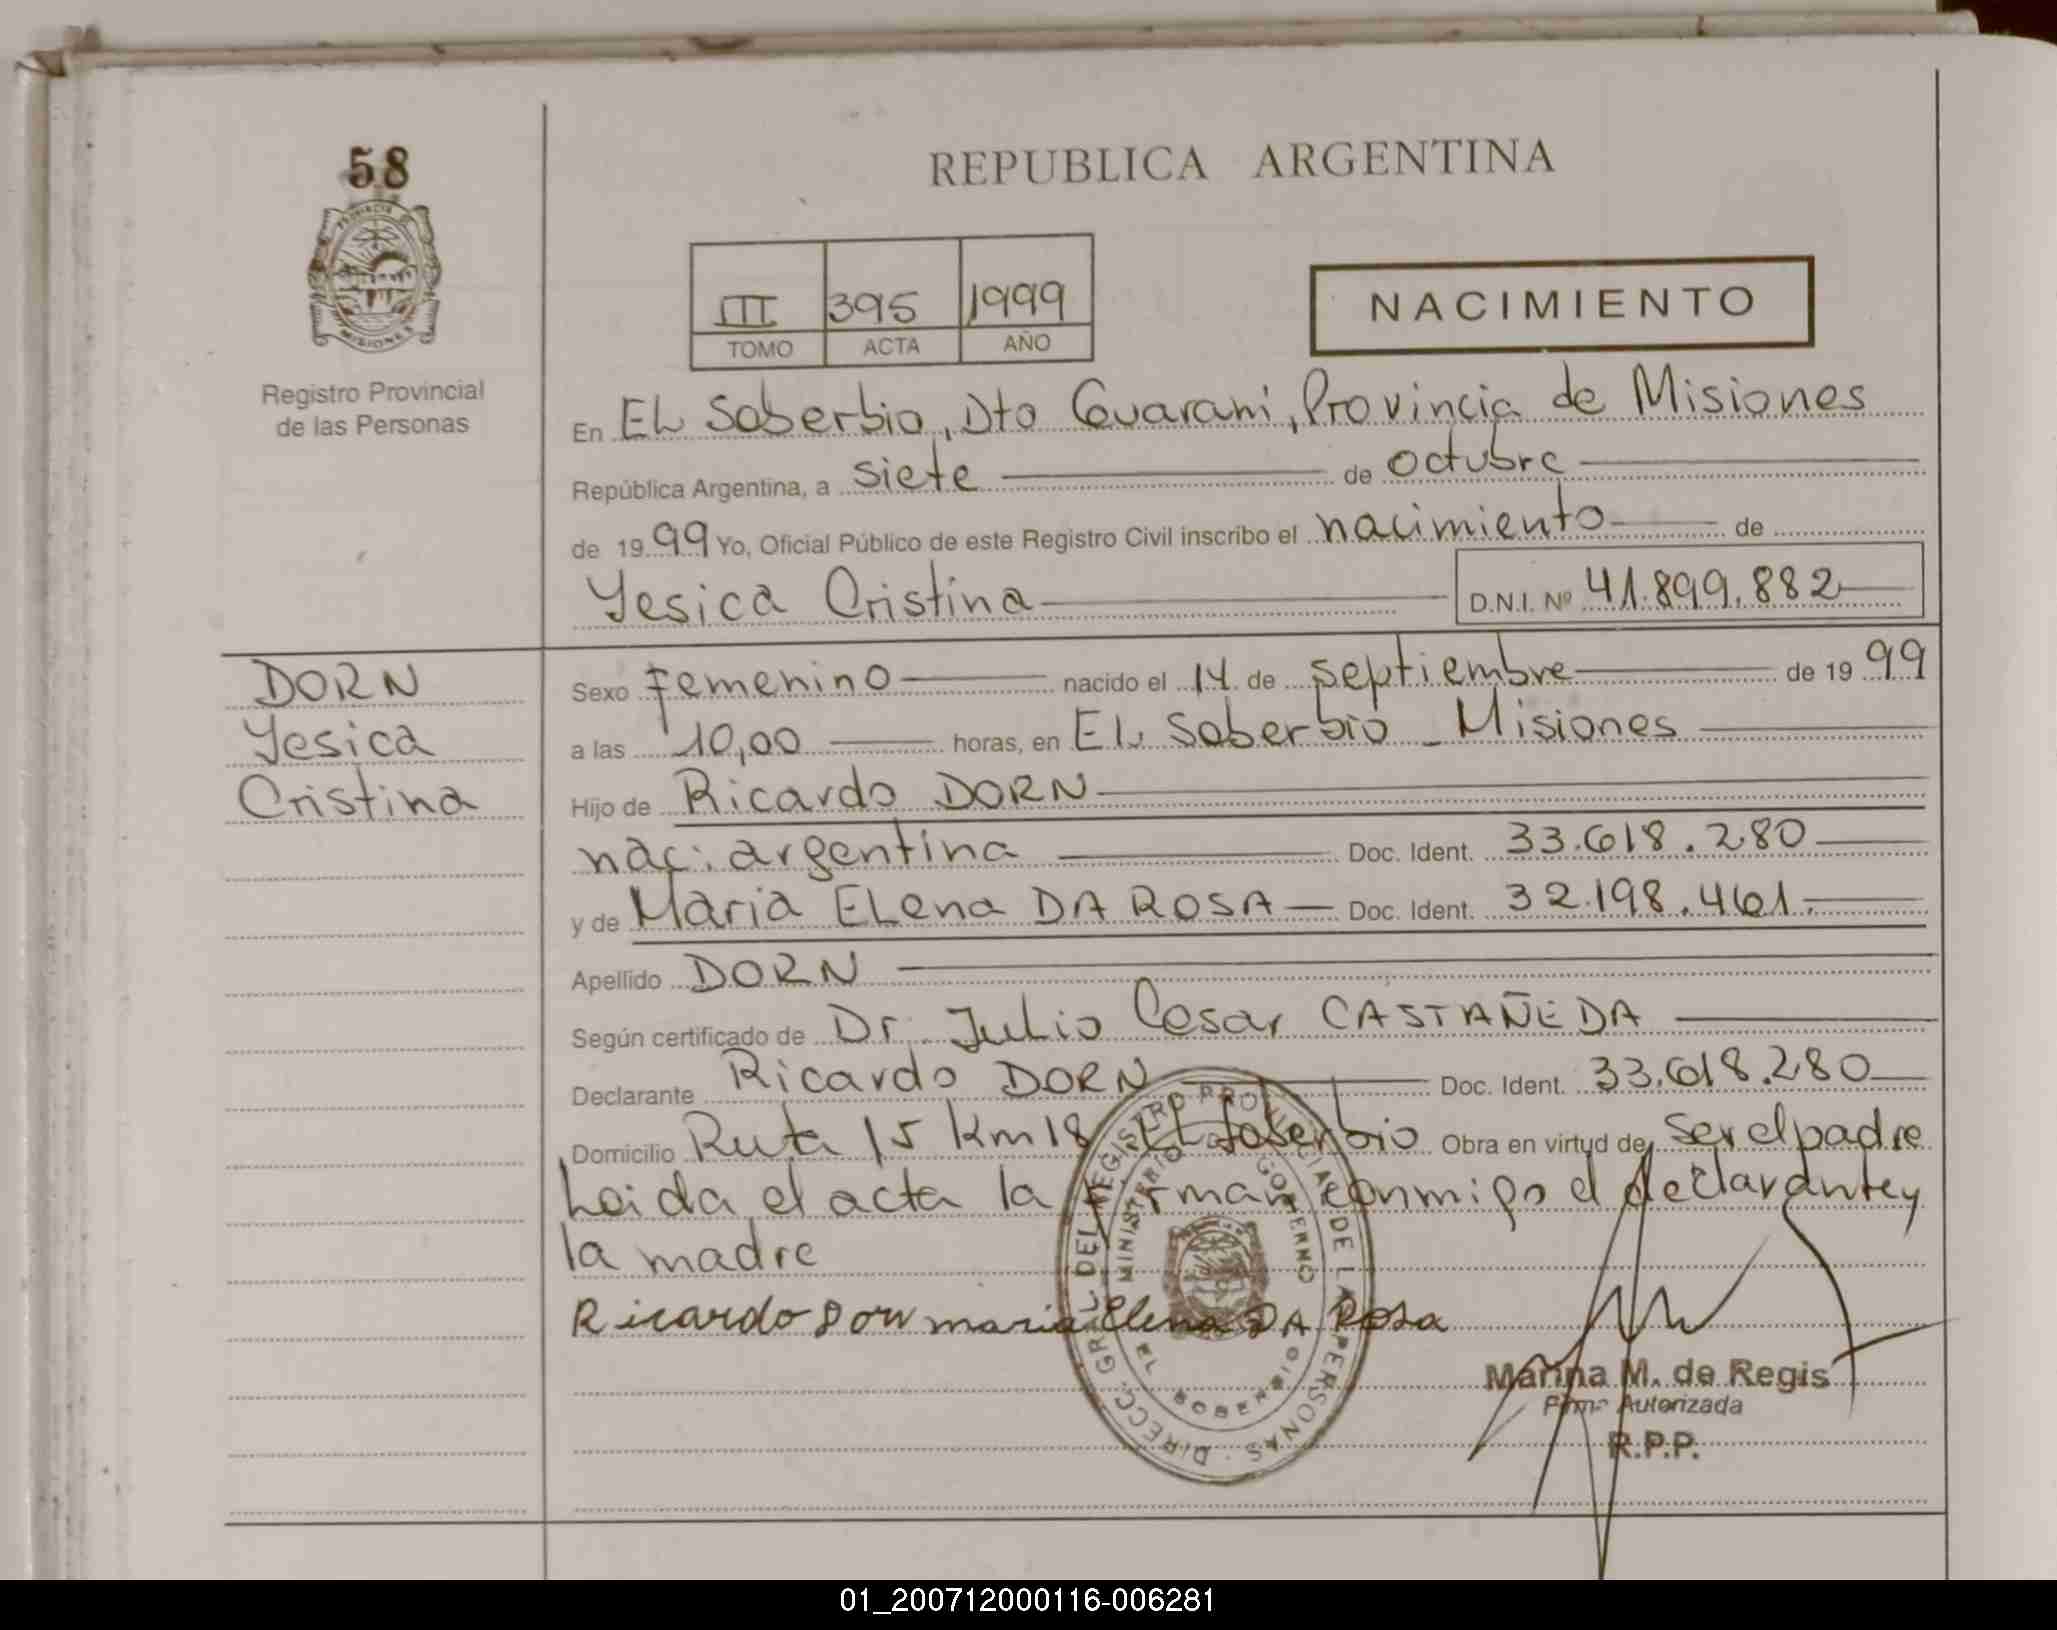 58
PROVINCIA DE
MISIONES
Registro Provincial
de las Personas
REPUBLICA ARGENTINA
III 395 1999
TOMO ACTA AÑO
NACIMIENTO
En EL Soberbio, Dto Guarani, Provincia de Misiones
República Argentina, a siete de octubre
de 1999 Yo, Oficial Público de este Registro Civil inscribo el nacimiento de
Yesica Cristina D.N.I. Nº 41.899.882
DORN
Yesica
Cristina
Sexo Femenino nacido el 14 de septiembre de 1999
a las 10,00 horas, en EL Soberbio - Misiones
Hijo de Ricardo DORN
nac: argentina Doc. Ident. 33.618.280
y de Maria ELena DA ROSA Doc. Ident. 32.198.461.
Apellido DORN
Según certificado de Dr. Julio Cesar CASTAÑEDA
Declarante Ricardo DORN Doc. Ident. 33.618.280
Domicilio Ruta 15 Km 18 EL Soberbio Obra en virtud de ser el padre
Leida el acta la firman conmigo el declarante y
la madre
Ricardo Dorn maria Elena DA Rosa
DIRECC. GRAL. DEL REGISTRO PROVINCIAL DE LAS PERSONAS
MINISTERIO DE GOBIERNO
EL SOBERBIO
Marina M. de Regis
Firma Autorizada
R.P.P.
01_200712000116-006281